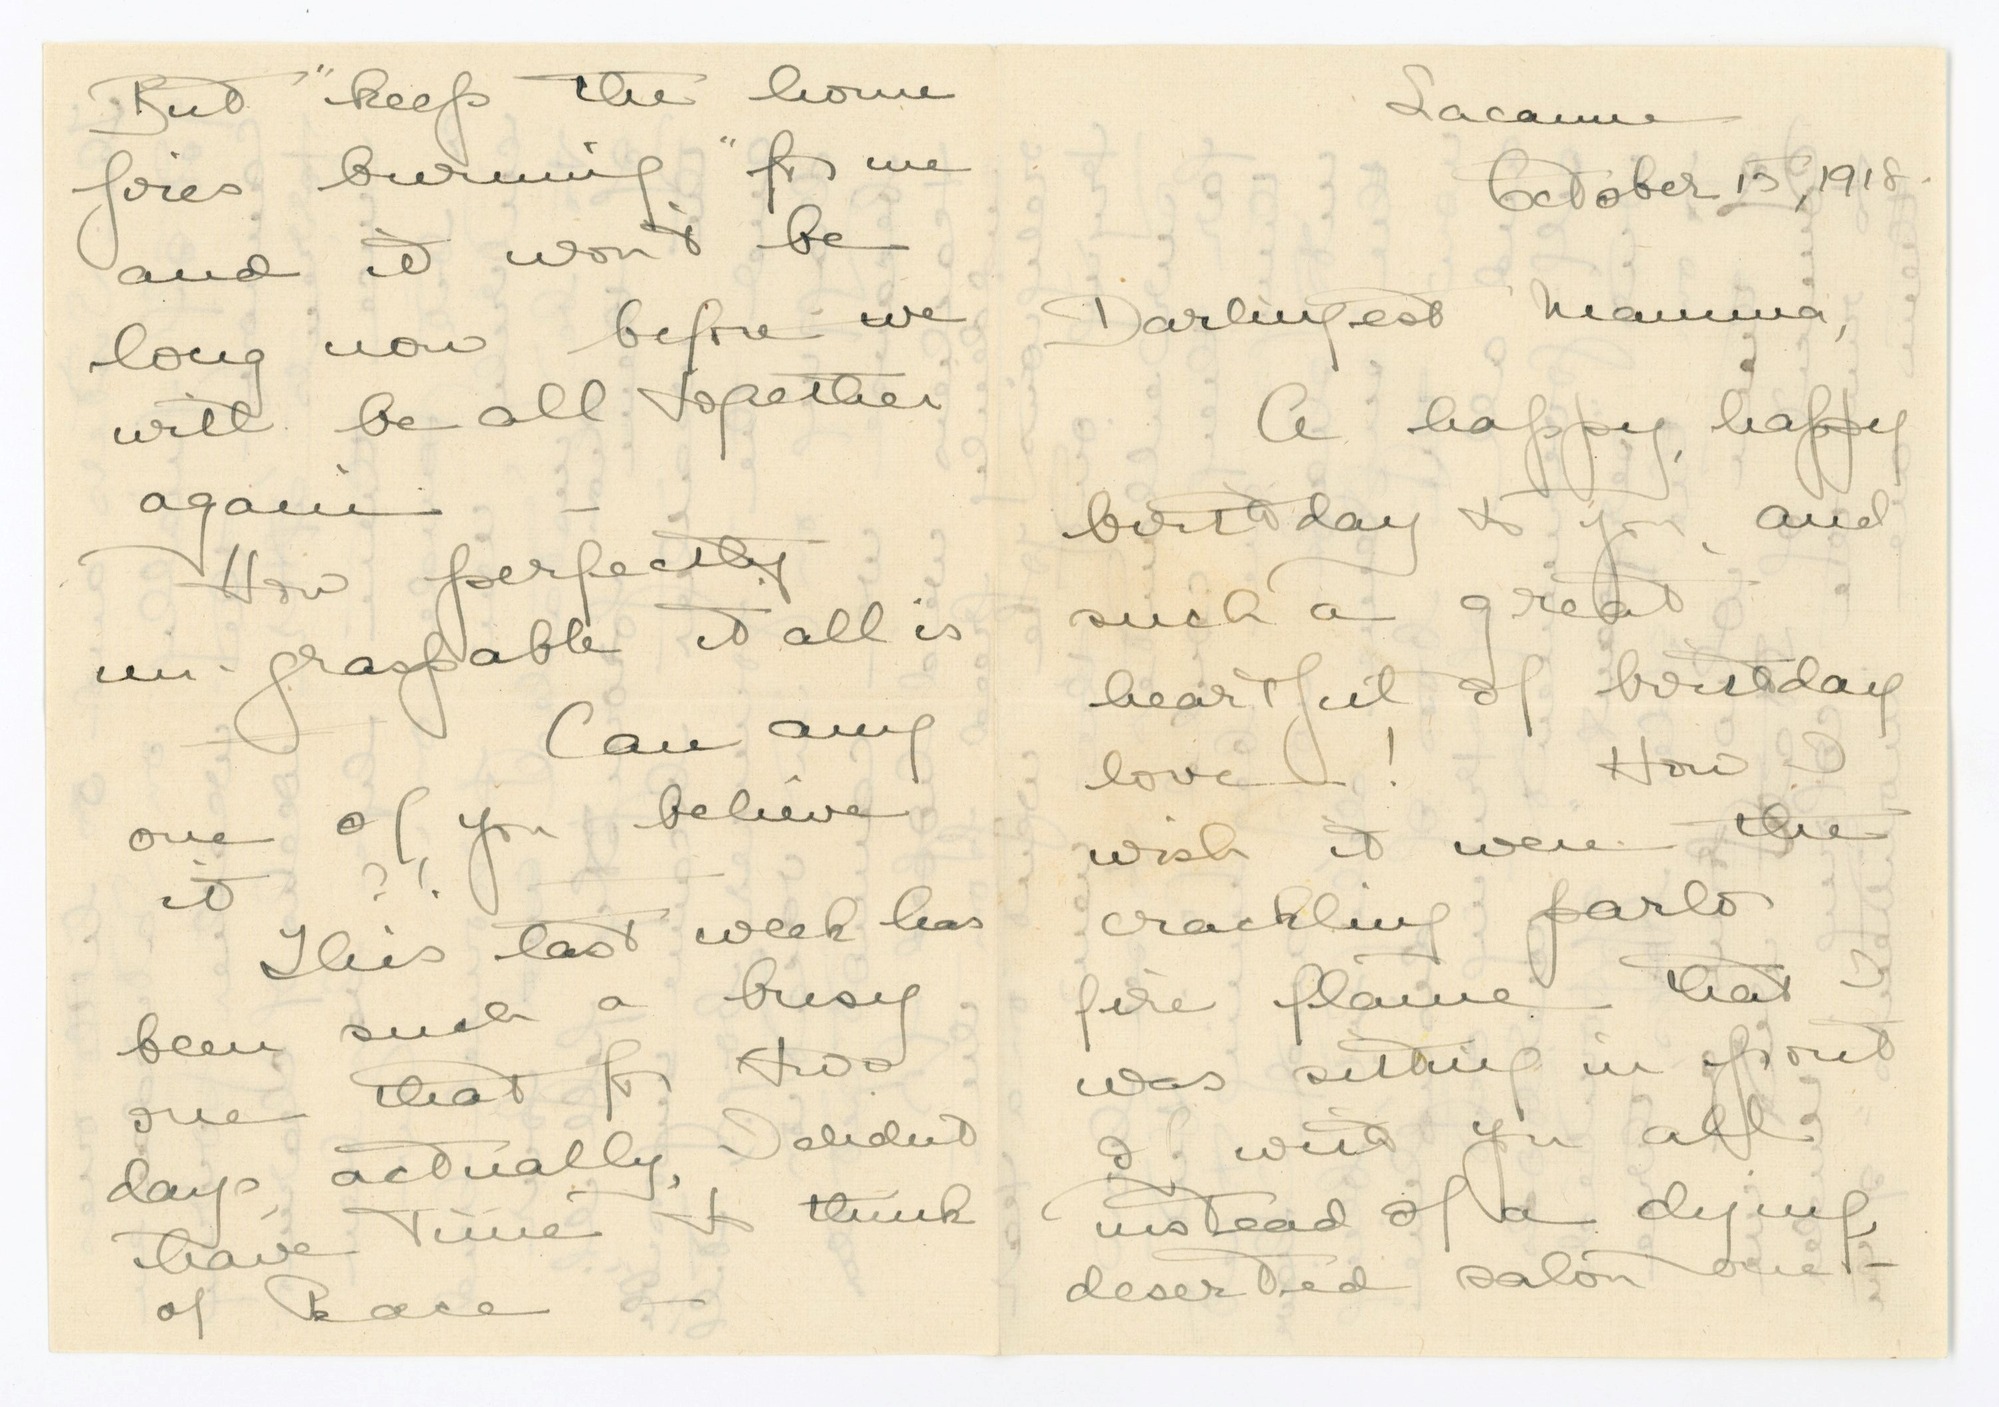 October 15, 1918.
Darlingest Mamma,
A happy, happy
birthday to you, and
such a great
heartful of birthday
love — ! How I
wish it were the
crackling parlor
fire flame that I
was sitting in front
of with you all
instead of a dying,
deserted salon one —
But "keep the home
fires burning" for me
and it won't be
long now before we
will be all together
again —
How perfectly
un-graspable it all is
— Can any
one of you believe
it ?!
This last week has
been such a busy
one that for two
days, actually, I didn't
have time to think
of Peace —